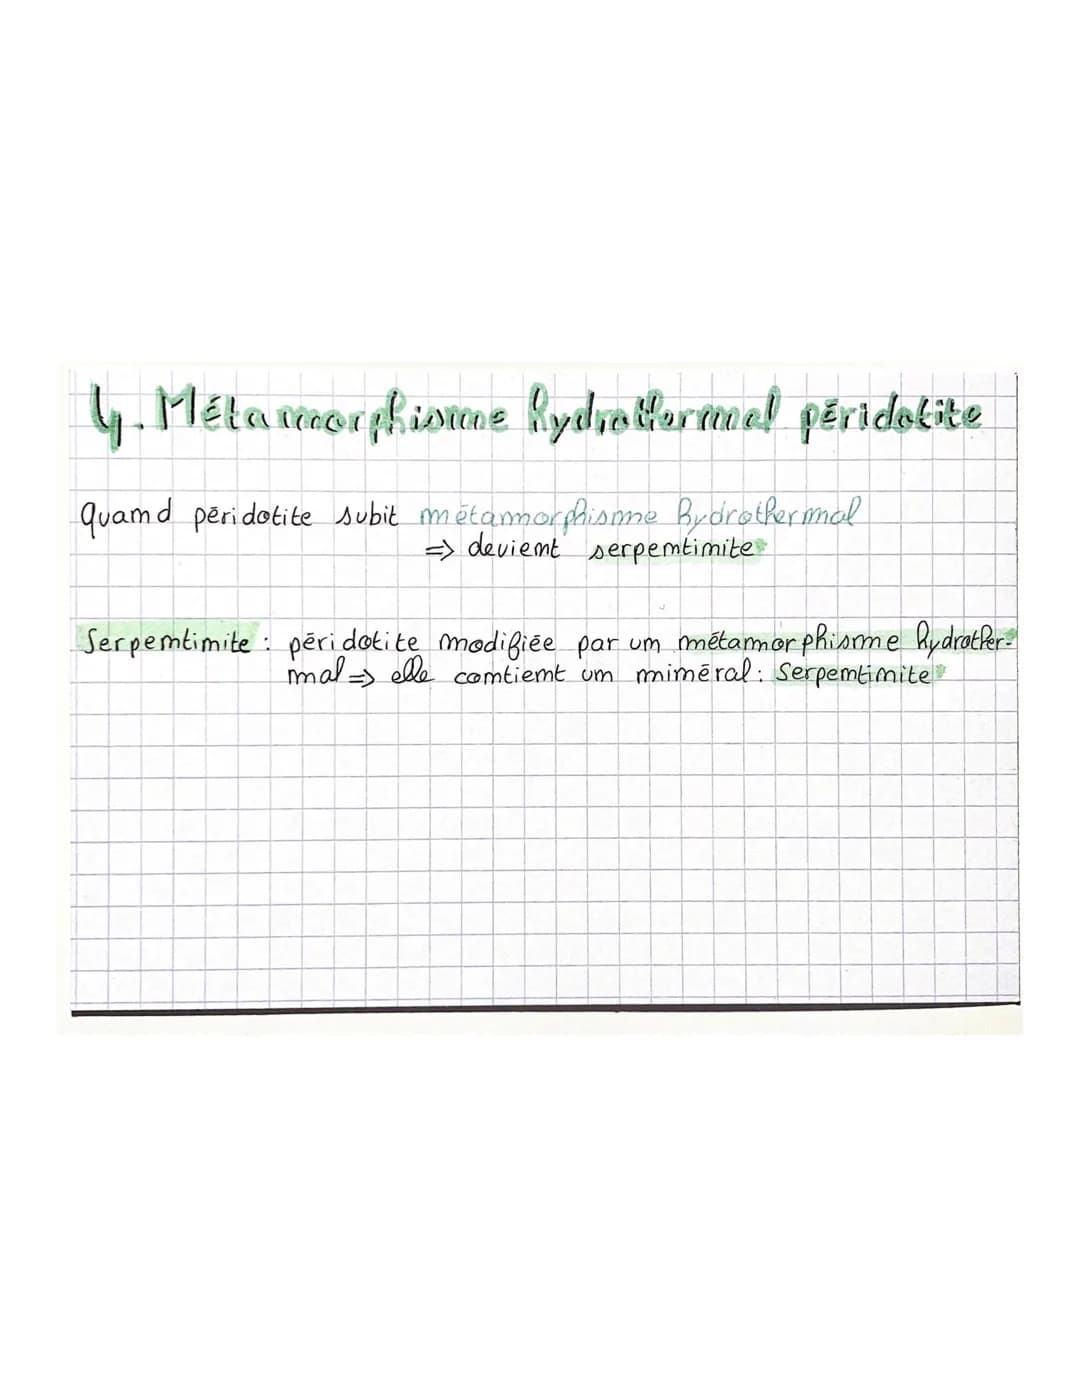 4. Métamorphisme hydrothermal péridotite
quand péridotite subit métamorphisme hydrothermal
=> devient serpentinite
Serpentinite : péridotite modifiée par un métamorphisme hydrother-
mal => elle contient un minéral : Serpentinite